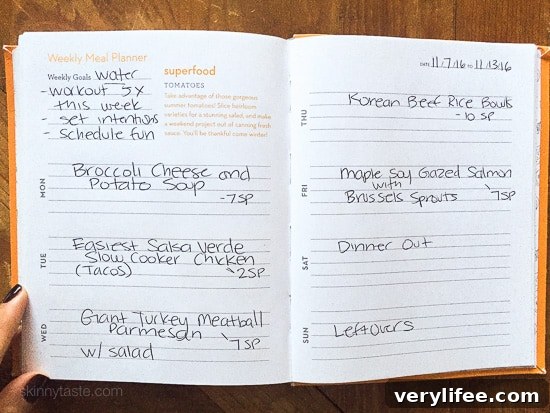 Weekly Meal Planner
Weekly Goals water
- workout 5x
this week
- set intentions
- schedule fun
superfood
TOMATOES
Take advantage of those gorgeous
summer tomatoes! Slice heirloom
varieties for a stunning salad, and make
a weekend project out of canning fresh
sauce. You'll be thankful come winter!
MON
Broccoli Cheese and
Potato Soup
-7SP
TUE
Easiest Salsa Verde
Slow Cooker Chicken
(Tacos) 2SP
WED
Giant Turkey Meatball
Parmesan 7SP
w/ salad
DATE 11/7/16 TO 11/13/16
THU
Korean Beef Rice Bowls
-10 SP
FRI
Maple Soy Gazed Salmon
with
Brussels Sprouts 7SP
SAT
Dinner Out
SUN
Leftovers
skinnytaste.com
verylifee.com